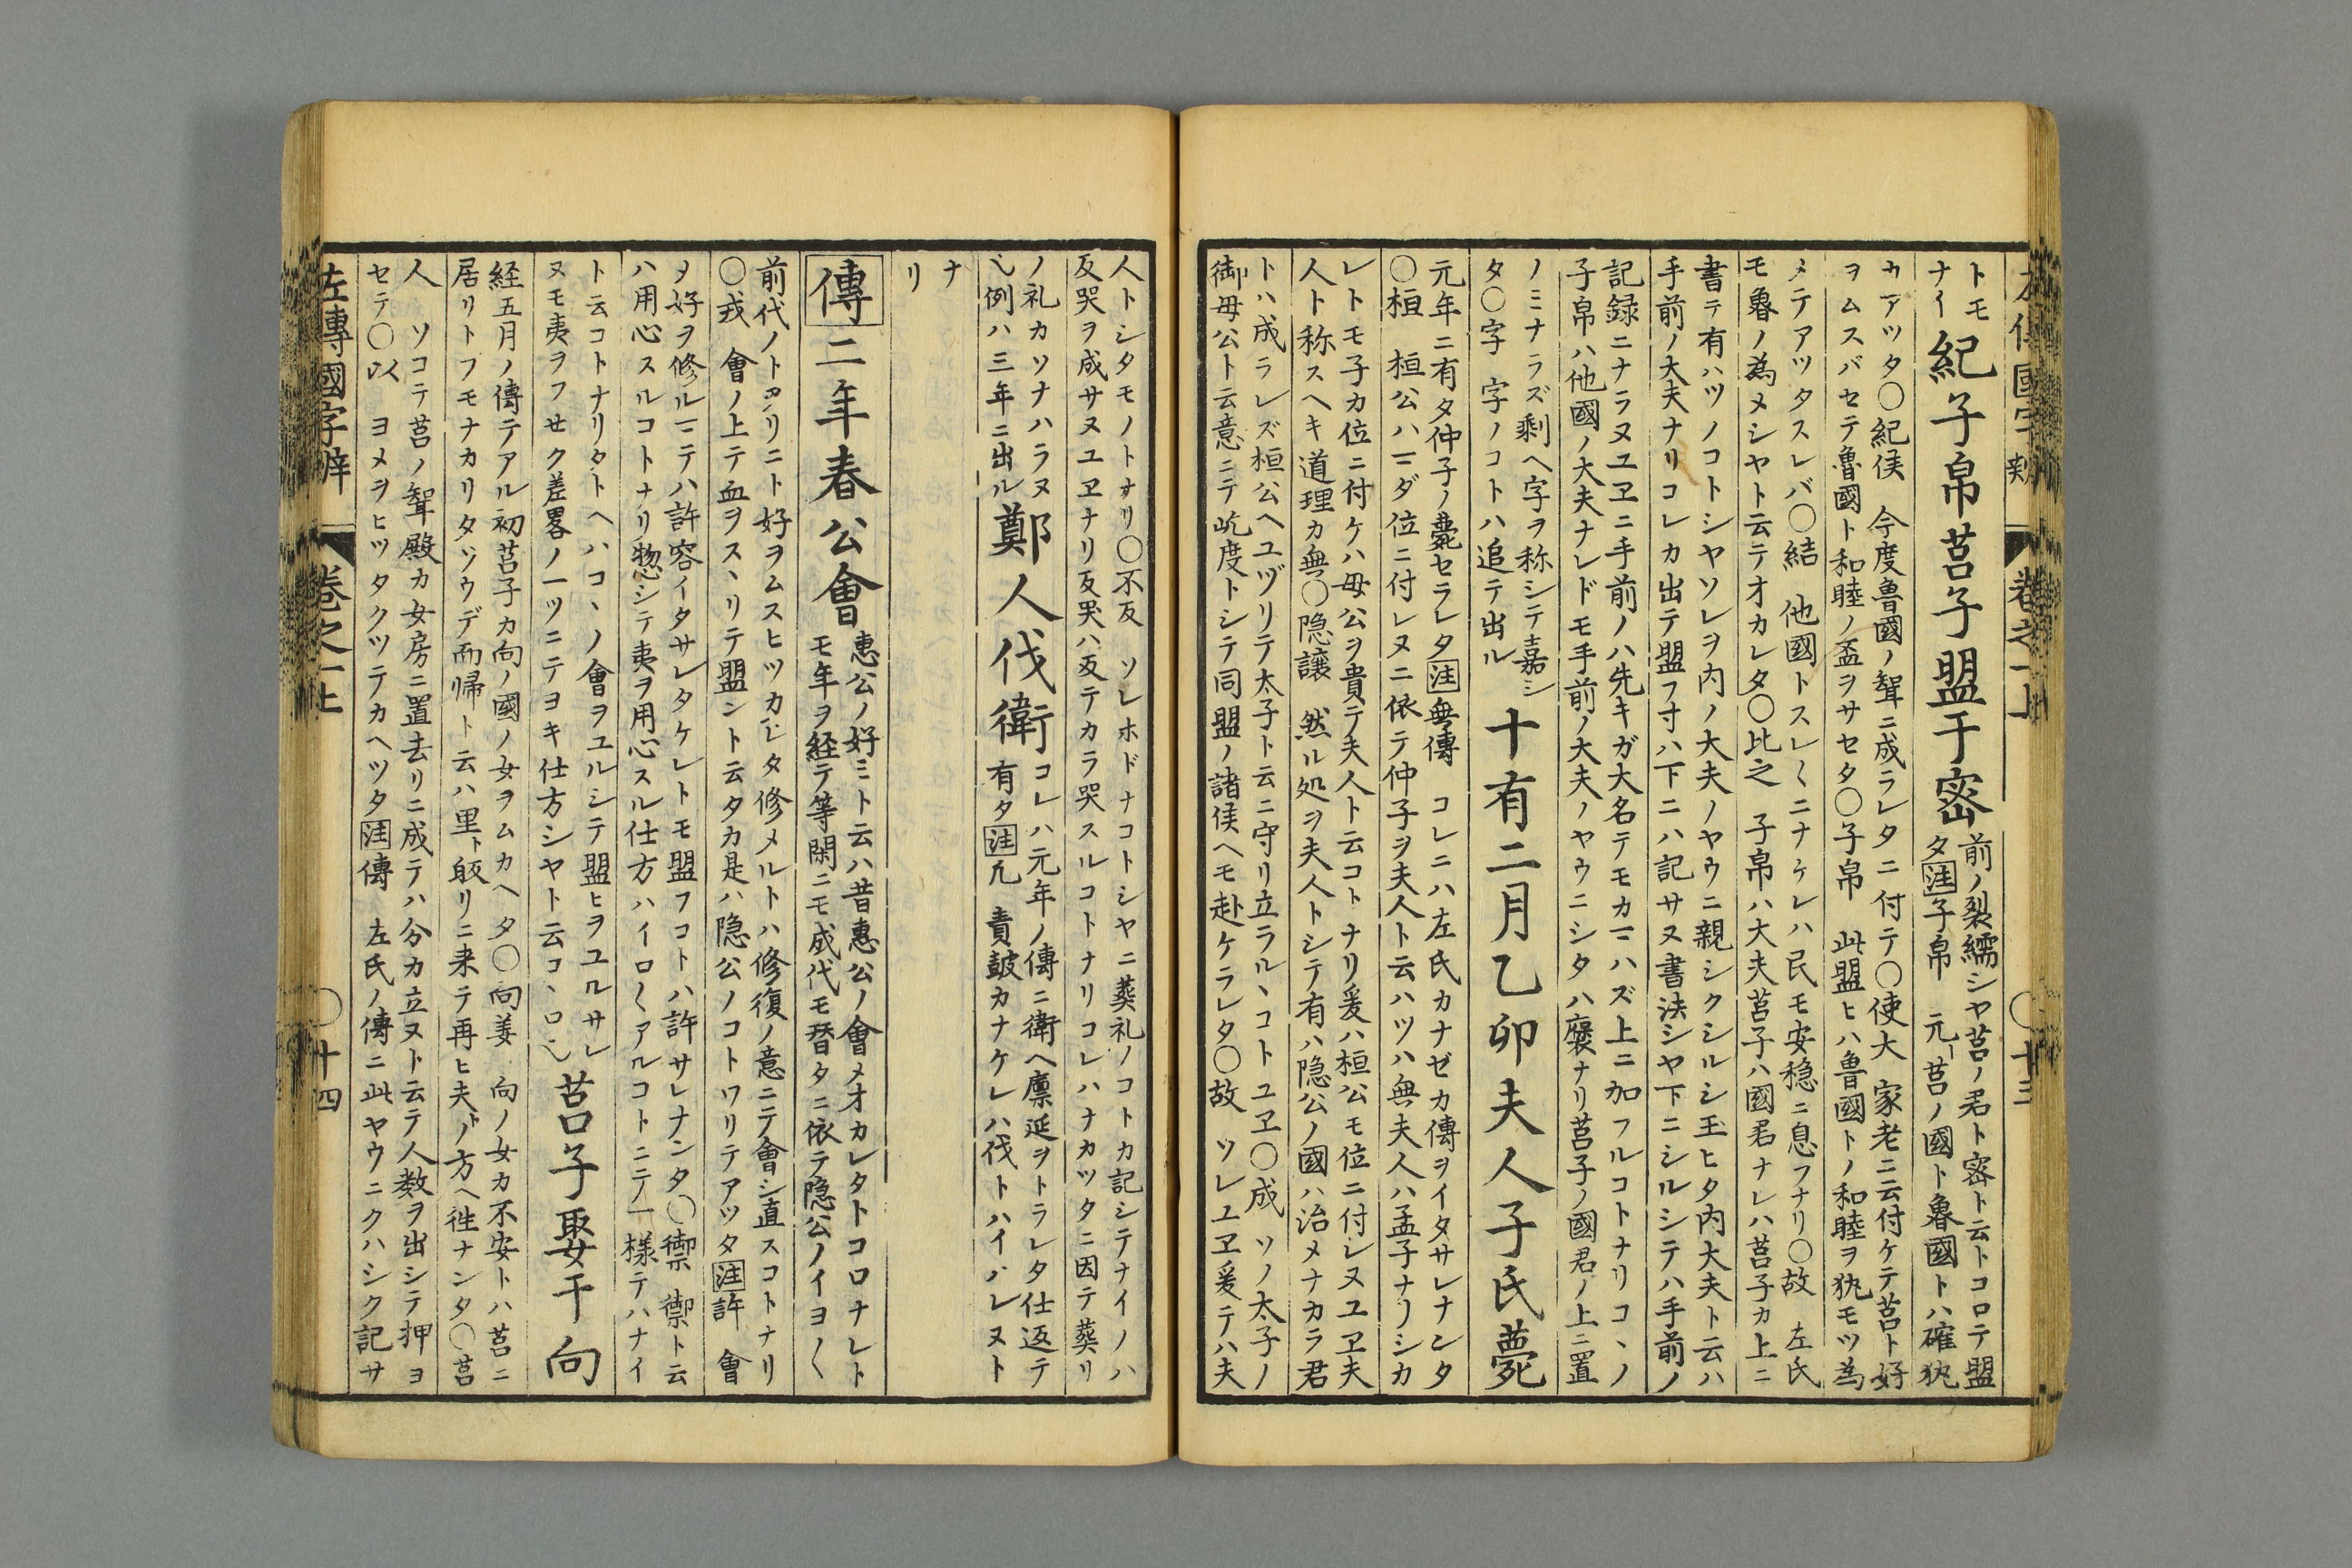 左傳國字辨 巻之一上 〇十三
トモ
ナイ
紀子帛莒子盟于密
前ノ裂繻シヤ莒ノ君ト密ト云トコロテ盟
タ注子帛 元莒ノ國ト魯國トハ確執
カアツタ〇紀侯 今度魯國ノ聟ニ成ラレタニ付テ〇使大 家老ニ云付ケテ莒ト好
ヲムスバセテ魯國ト和睦ノ盃ヲサセタ〇子帛 此盟ヒハ魯國トノ和睦ヲ執モツ為
メテアツタスレバ〇結 他國トスレ〱ニナケレハ民モ安穏ニ息フナリ〇故 左氏
モ魯ノ為メシヤト云テオカレタ〇比之 子帛ハ大夫莒子ハ國君ナレハ莒子カ上ニ
書テ有ハツノコトシヤソレヲ内ノ大夫ノヤウニ親シクシルシ玉ヒタ内大夫ト云ハ
手前ノ大夫ナリコレカ出テ盟フ寸ハ下ニハ記サヌ書法シヤ下ニシルシテハ手前ノ
記録ニナラヌユヱニ手前ノハ先キガ大名テモカマハズ上ニ加フルコトナリコヽノ
子帛ハ他國ノ大夫ナレドモ手前ノ大夫ノヤウニシタハ褒ナリ莒子ノ國君ノ上ニ置
ノミナラズ剰ヘ字ヲ称シテ嘉シ
タ〇字 字ノコトハ追テ出ル
十有二月乙卯夫人子氏薨
元年ニ有タ仲子ノ薨セラレタ注無傳 コレニハ左氏カナゼカ傳ヲイタサレナンタ
〇桓 桓公ハマダ位ニ付レヌニ依テ仲子ヲ夫人ト云ハツハ無夫人ハ孟子ナリシカ
レトモ子カ位ニ付ケハ母公ヲ貴テ夫人ト云コトナリ爰ハ桓公モ位ニ付レヌユヱ夫
人ト称スヘキ道理カ無〇隠譲 然ル処ヲ夫人トシテ有ハ隠公ノ國ハ治メナカラ君
トハ成ラレズ桓公ヘユヅリテ太子ト云ニ守リ立ラルヽコトユヱ〇成 ソノ太子ノ
御母公ト云意ニテ屹度トシテ同盟ノ諸侯ヘモ赴ケラレタ〇故 ソレユヱ爰テハ夫
人トシタモノトナリ〇不反 ソレホドナコトシヤニ葬礼ノコトカ記シテナイノハ
反哭ヲ成サヌユヱナリ反哭ハ返テカラ哭スルコトナリコレハナカツタニ因テ葬リ
ノ礼カソナハラヌ
例ハ三年ニ出ル
鄭人伐衛
コレハ元年ノ傳ニ衛ヘ廩延ヲトラレタ仕返テ
有タ注凡 責皷カナケレハ伐トハイハレヌト
ナ
リ
傳二年春公會
惠公ノ好ミト云ハ昔惠公ノ會メオカレタトコロナレト
モ年ヲ経テ等閑ニモ成代モ替タニ依テ隠公ノイヨ〱
前代ノトヲリニト好ヲムスヒツカレタ修メルトハ修復ノ意ニテ會シ直スコトナリ
〇戎 會ノ上テ血ヲスヽリテ盟ント云タカ是ハ隠公ノコトワリテアツタ注許 會
ヲ好ヲ修ルマテハ許容イタサレタケレトモ盟フコトハ許サレナンタ〇禦 禦ト云
ハ用心スルコトナリ惣シテ夷ヲ用心スル仕方ハイロ〱アルコトニテ一様テハナイ
ト云コトナリタトヘハコヽノ會ヲユルシテ盟ヒヲユルサレ
ヌモ夷ヲフセク差畧ノ一ツニテヨキ仕方シヤト云コヽロ
莒子娶于向
経五月ノ傳テアル初莒子カ向ノ國ノ女ヲムカヘタ〇向姜 向ノ女カ不安トハ莒ニ
居リトフモナカリタソウデ而帰ト云ハ里ト皈リニ来テ再ヒ夫トノ方ヘ往ナンタ〇莒
人 ソコテ莒ノ聟殿カ女房ニ置去リニ成テハ分カ立ヌト云テ人数ヲ出シテ押ヨ
セテ〇以 ヨメヲヒツタクツテカヘツタ注傳 左氏ノ傳ニ此ヤウニクハシク記サ
左傳國字辨 巻之一上 〇十四